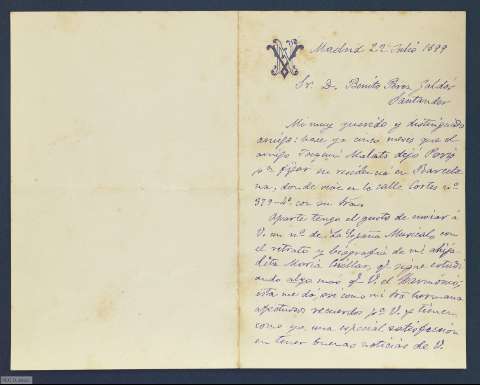 Madrid 22 Julio 1899
Sr. D. Benito Perez Galdós
Santander
Mi muy querido y distinguido
amigo: hace ya cinco meses que el
amigo Joaquín Malats dejó París
pª fijar su residencia en Barcelo
na, donde vive en la calle Cortes nº
379-4º con su
Aparte tengo el gusto de enviar á
V. un nº de La España Musical, con
el retrato y biografía de mi ahija
dita María Cuellar, qe sigue estudi
ando algo más qe V. el Harmonio;
esta me dá, así como mi hermana
afectuosos recuerdos pª V. y tienen
como yo, una especial satisfacción
en tener buenas noticias de V.